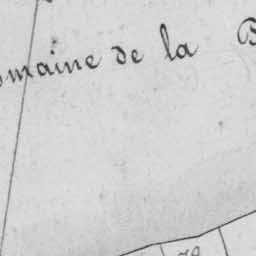 omaine de la B